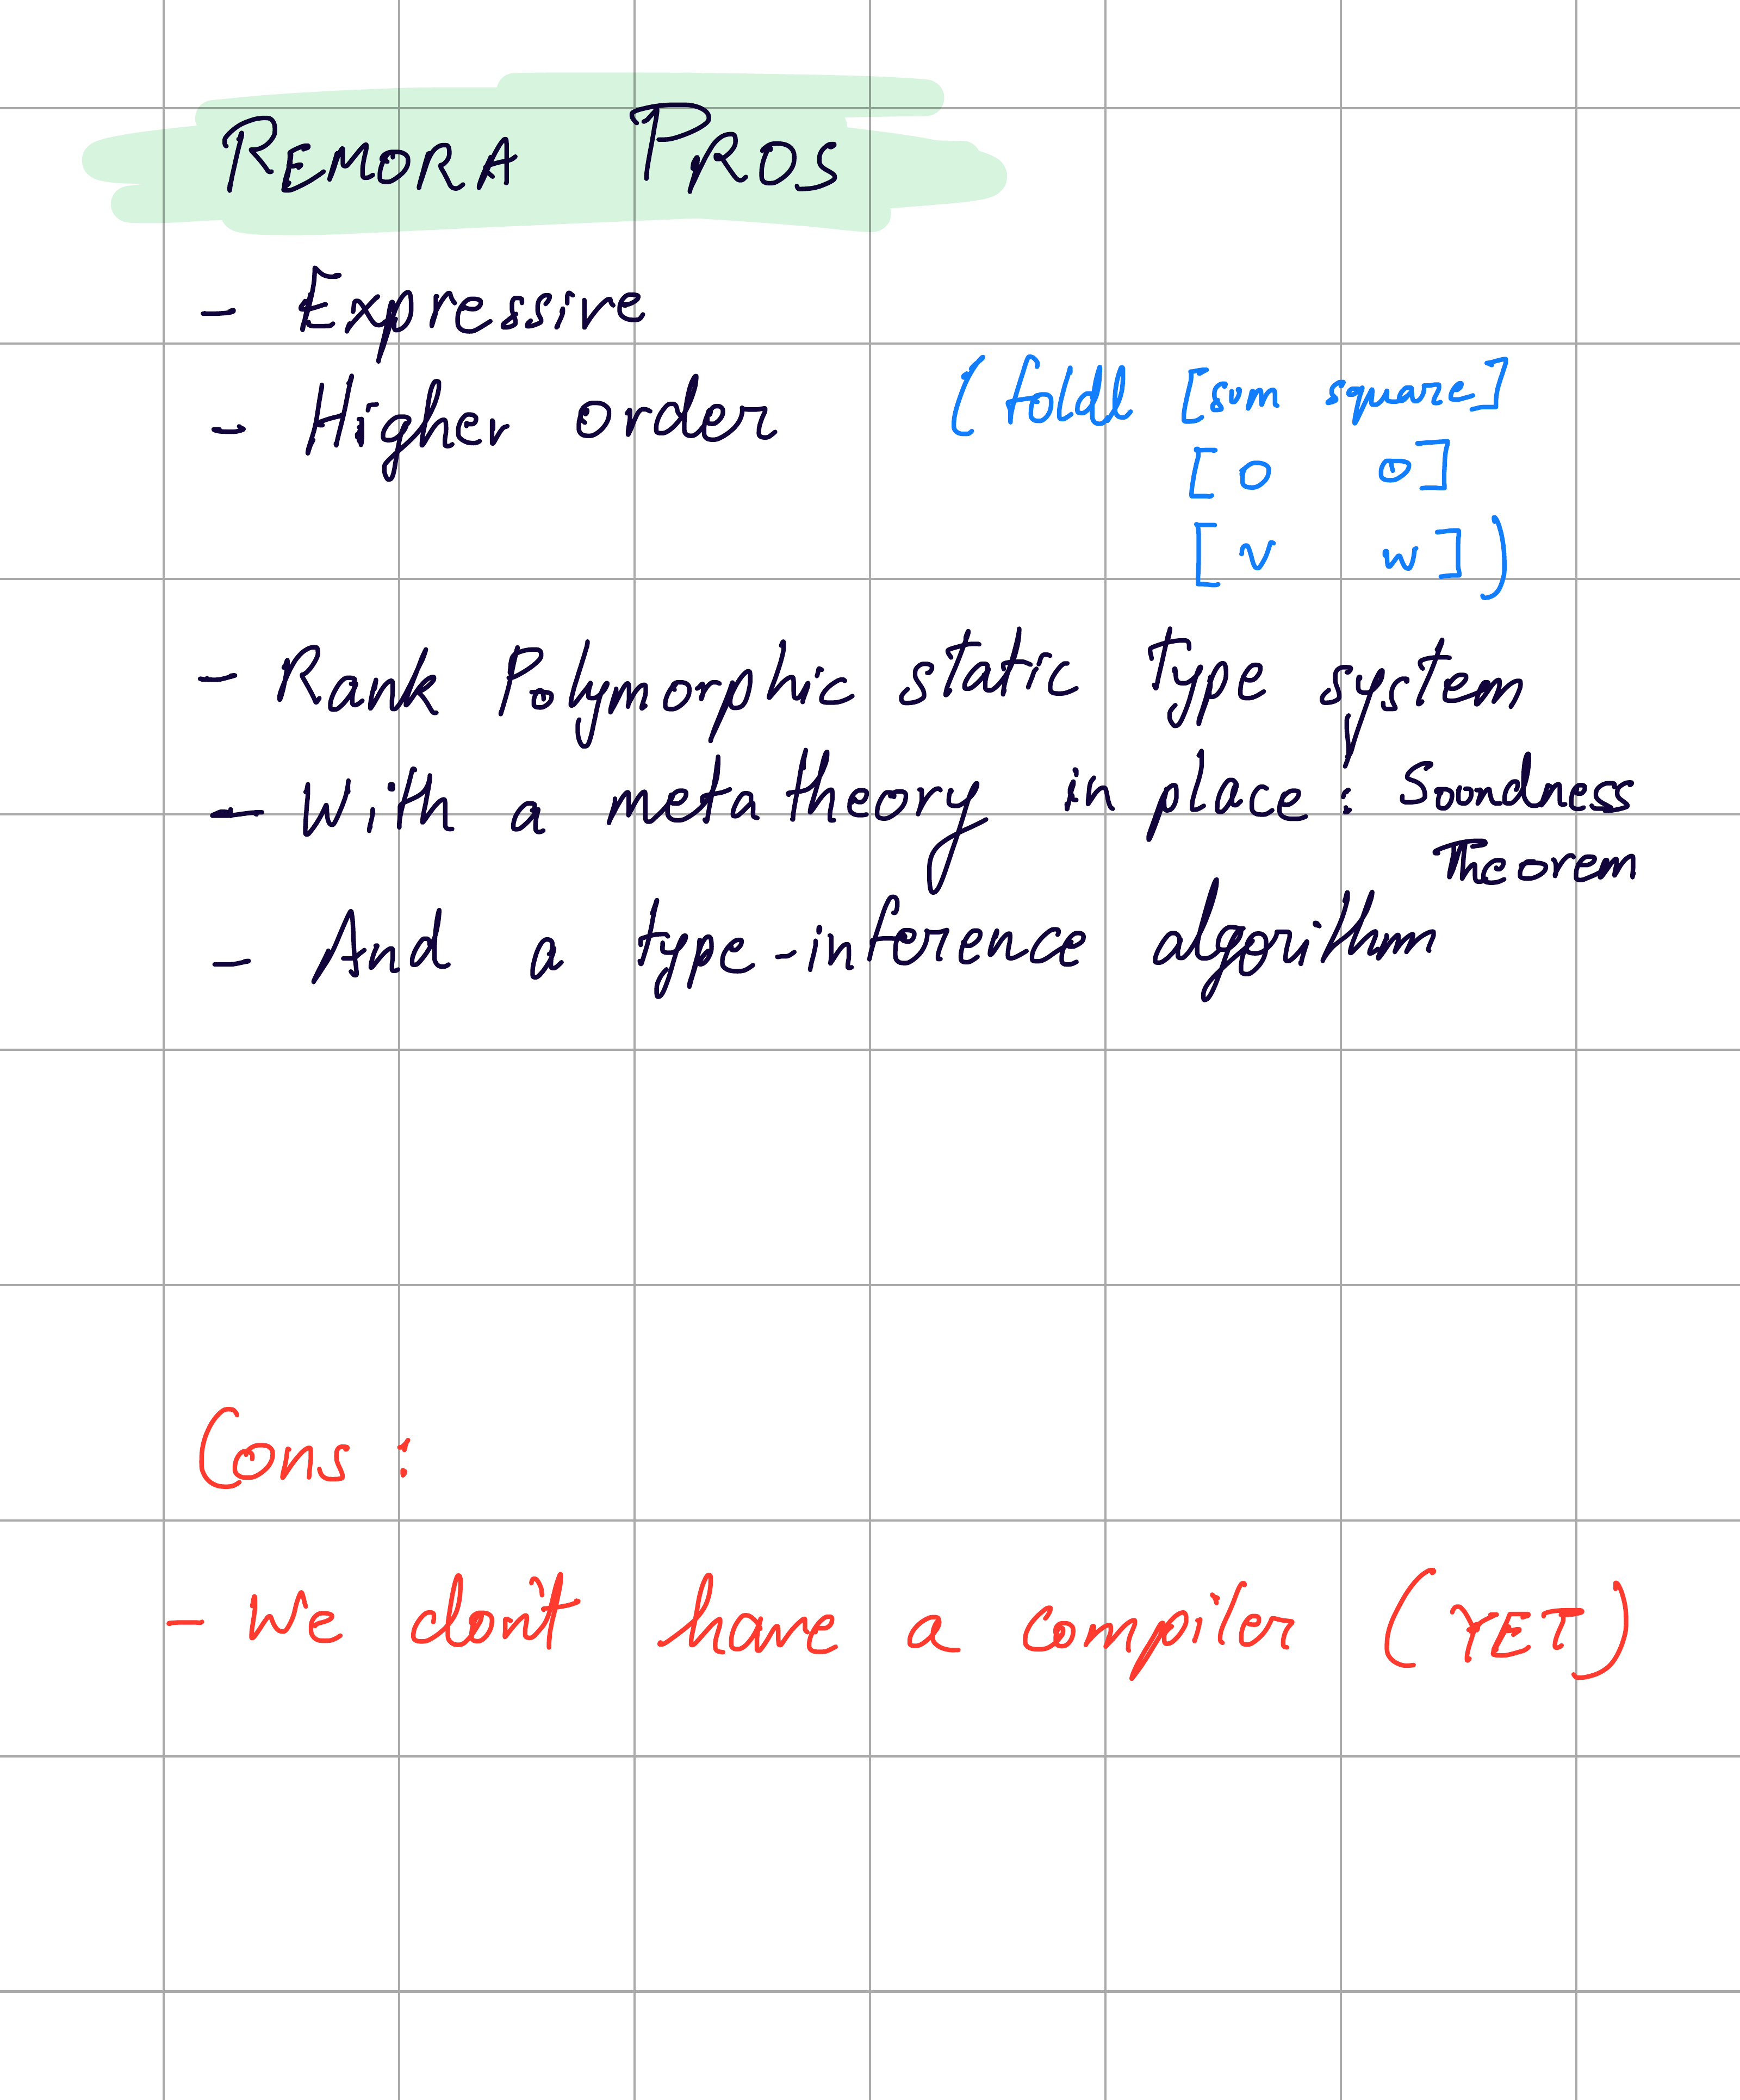 REMORA PROS
- Expressive
- Higher order
(fold [sum square]
[0 0]
[v w])
- Rank Polymorphic static type system
- With a metatheory in place: Soundness
Theorem
- And a type-inference algorithm
Cons:
- We don't have a compiler (YET)